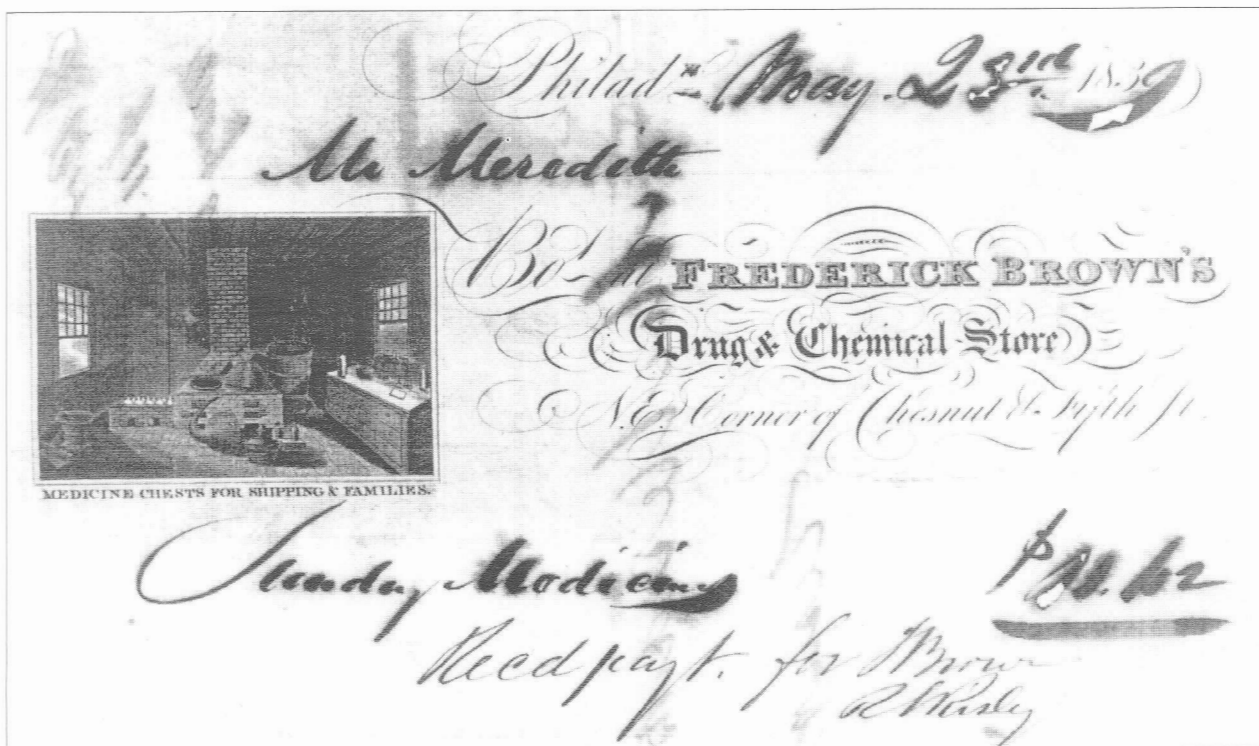 Philadᵃ May 23rd 1839
Mr Meredith
Bo't of FREDERICK BROWN'S
Drug & Chemical Store
N.E. Corner of Chesnut & Fifth St.
MEDICINE CHESTS FOR SHIPPING & FAMILIES.
Sunday Medicines
Recd payt. for F Brown